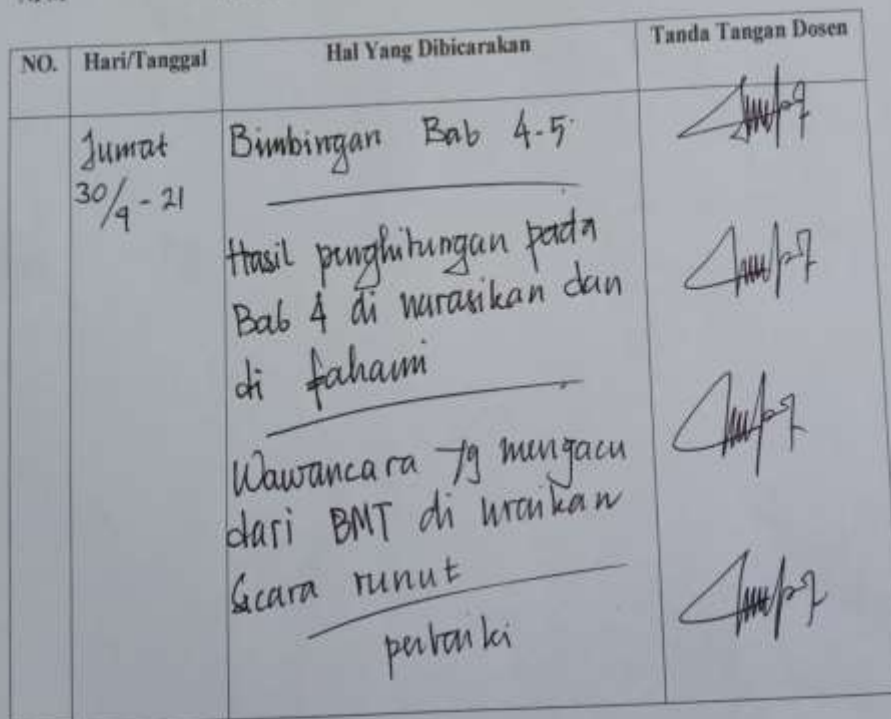 NO. Hari/Tanggal Hal Yang Dibicarakan Tanda Tangan Dosen
Jumat
30/9 - 21
Bimbingan Bab 4-5
Hasil penghitungan pada
Bab 4 di narasikan dan
di fahami
Wawancara yg mengacu
dari BMT di uraikan
Secara runut
perbaiki